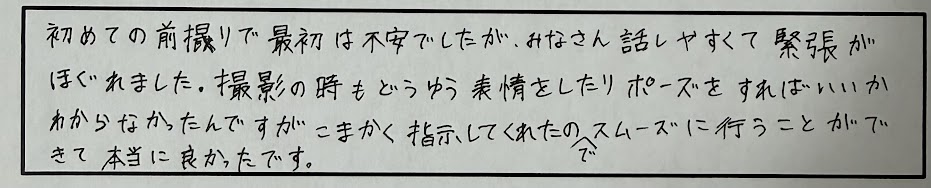 初めての前撮りで最初は不安でしたが、みなさん話しやすくて緊張が
ほぐれました。撮影の時もどうゆう表情をしたりポーズをすればいいか
わからなかったんですがこまかく指示してくれたのでスムーズに行うことがで
きて本当に良かったです。